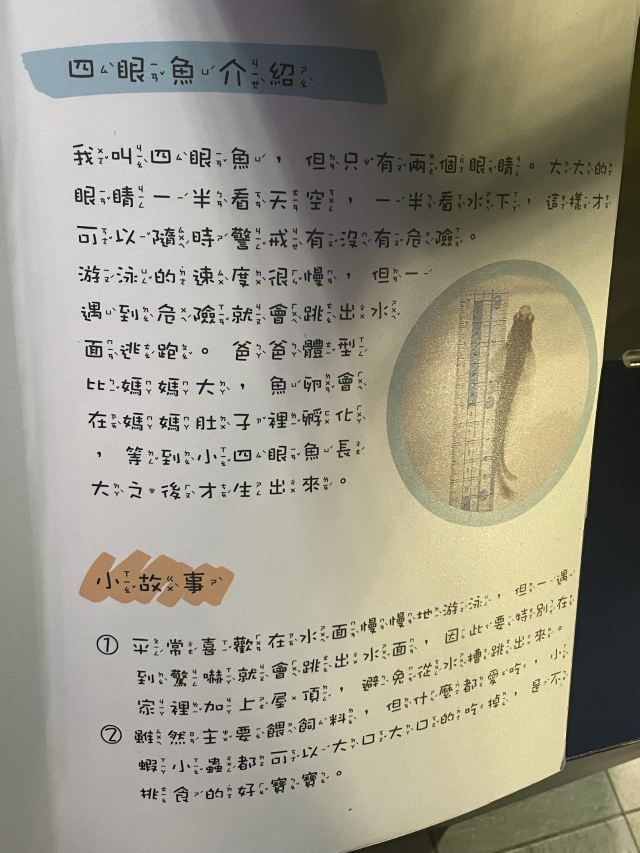 四眼魚介紹
我叫四眼魚，但只有兩個眼睛。大大的
眼睛一半看天空，一半看水下，這樣才
可以隨時警戒有沒有危險。
游泳的速度很慢，但一
遇到危險就會跳出水
面逃跑。爸爸體型
比媽媽大，魚卵會
在媽媽肚子裡孵化
，等到小四眼魚長
大之後才生出來。
小故事
① 平常喜歡在水面慢慢地游泳，但一遇
到驚嚇就會跳出水面，因此要特別在
家裡加上屋頂，避免從水槽跳出來。
② 雖然主要餵飼料，但什麼都愛吃，小
蝦小蟲都可以大口大口的吃掉，是不
挑食的好寶寶。